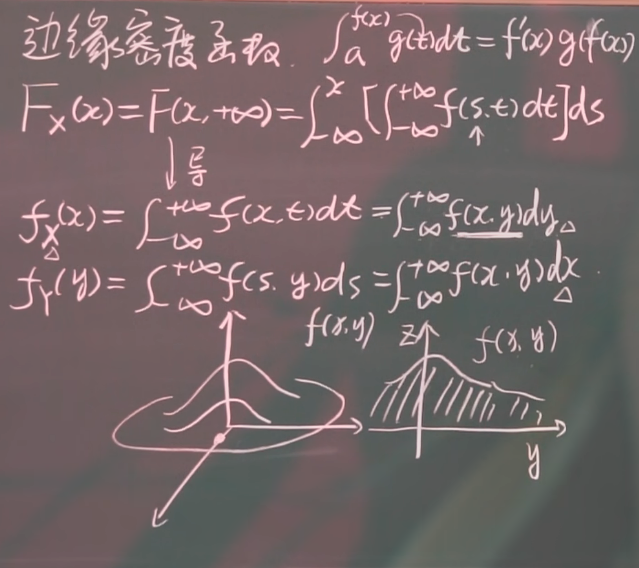 边缘密度函数. ∫_a^{f(x)} g(t)dt = f'(x) g(f(x))
F_X(x) = F(x, +∞) = ∫_{-∞}^{x} [∫_{-∞}^{+∞} f(s.t) dt] ds
↓导
f_X(x) = ∫_{-∞}^{+∞} f(x,t) dt = ∫_{-∞}^{+∞} f(x.y) dy
f_Y(y) = ∫_{-∞}^{+∞} f(s.y) ds = ∫_{-∞}^{+∞} f(x.y) dx
f(x,y) z f(x,y)
y